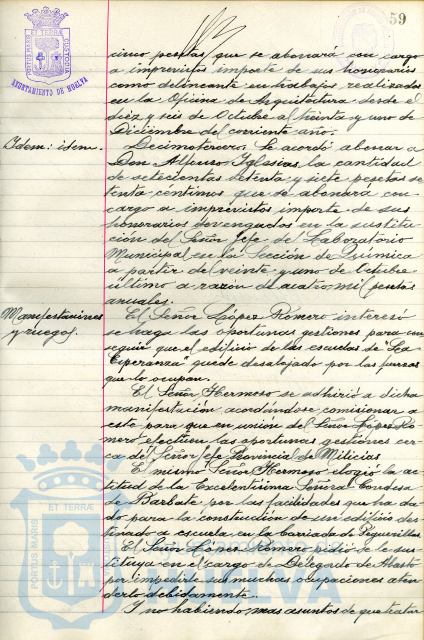 59
PORTUS MARIS ET TERRÆ CUSTODIA
AYUNTAMIENTO DE HUELVA
cinco pesetas que se abonará con cargo
a imprevistos importe de sus honorarios
como delineante en trabajos realizados
en la Oficina de Arquitectura desde el
diez y seis de Octubre al treinta y uno de
Diciembre del corriente año.
Idem: idem.
Decimotercero. Se acordó abonar a
Don Alfonso Iglesias, la cantidad
de setecientas setenta y siete pesetas se
tenta céntimos que se abonará con
cargo a imprevistos importe de sus
honorarios devengados en la sustitu
ción del Señor Jefe del Laboratorio
Municipal en la Sección de Química
a partir de veinte y uno de Octubre
último a razón de cuatro mil pesetas
anuales.
Manifestaciones
y ruegos.
El Señor López Romero interesó
se haga las oportunas gestiones para con
seguir que el edificio de las escuelas de "La
Esperanza" quede desalojado por las fuerzas
que lo ocupan.
El Señor Hermoso se adhirió a dicha
manifestación acordándose comisionar a
este para que en unión del Señor López Ro
mero efectúen las oportunas gestiones cer
ca del Señor Jefe Provincial de Milicias
El mismo Señor Hermoso elogió la ac
titud de la Excelentísima Señora Condesa
de Barbate por las facilidades que ha da
do para la construcción de un edificio des
tinado a escuela en la barriada de Peguerillas
El Señor López Romero pidió se le sus
tituya en el cargo de Delegado de Abasto
por impedirle sus muchas ocupaciones aten
derlo debidamente.
Y no habiendo mas asuntos de que tratar
PORTUS MARIS
ET TERRÆ
HUELVA